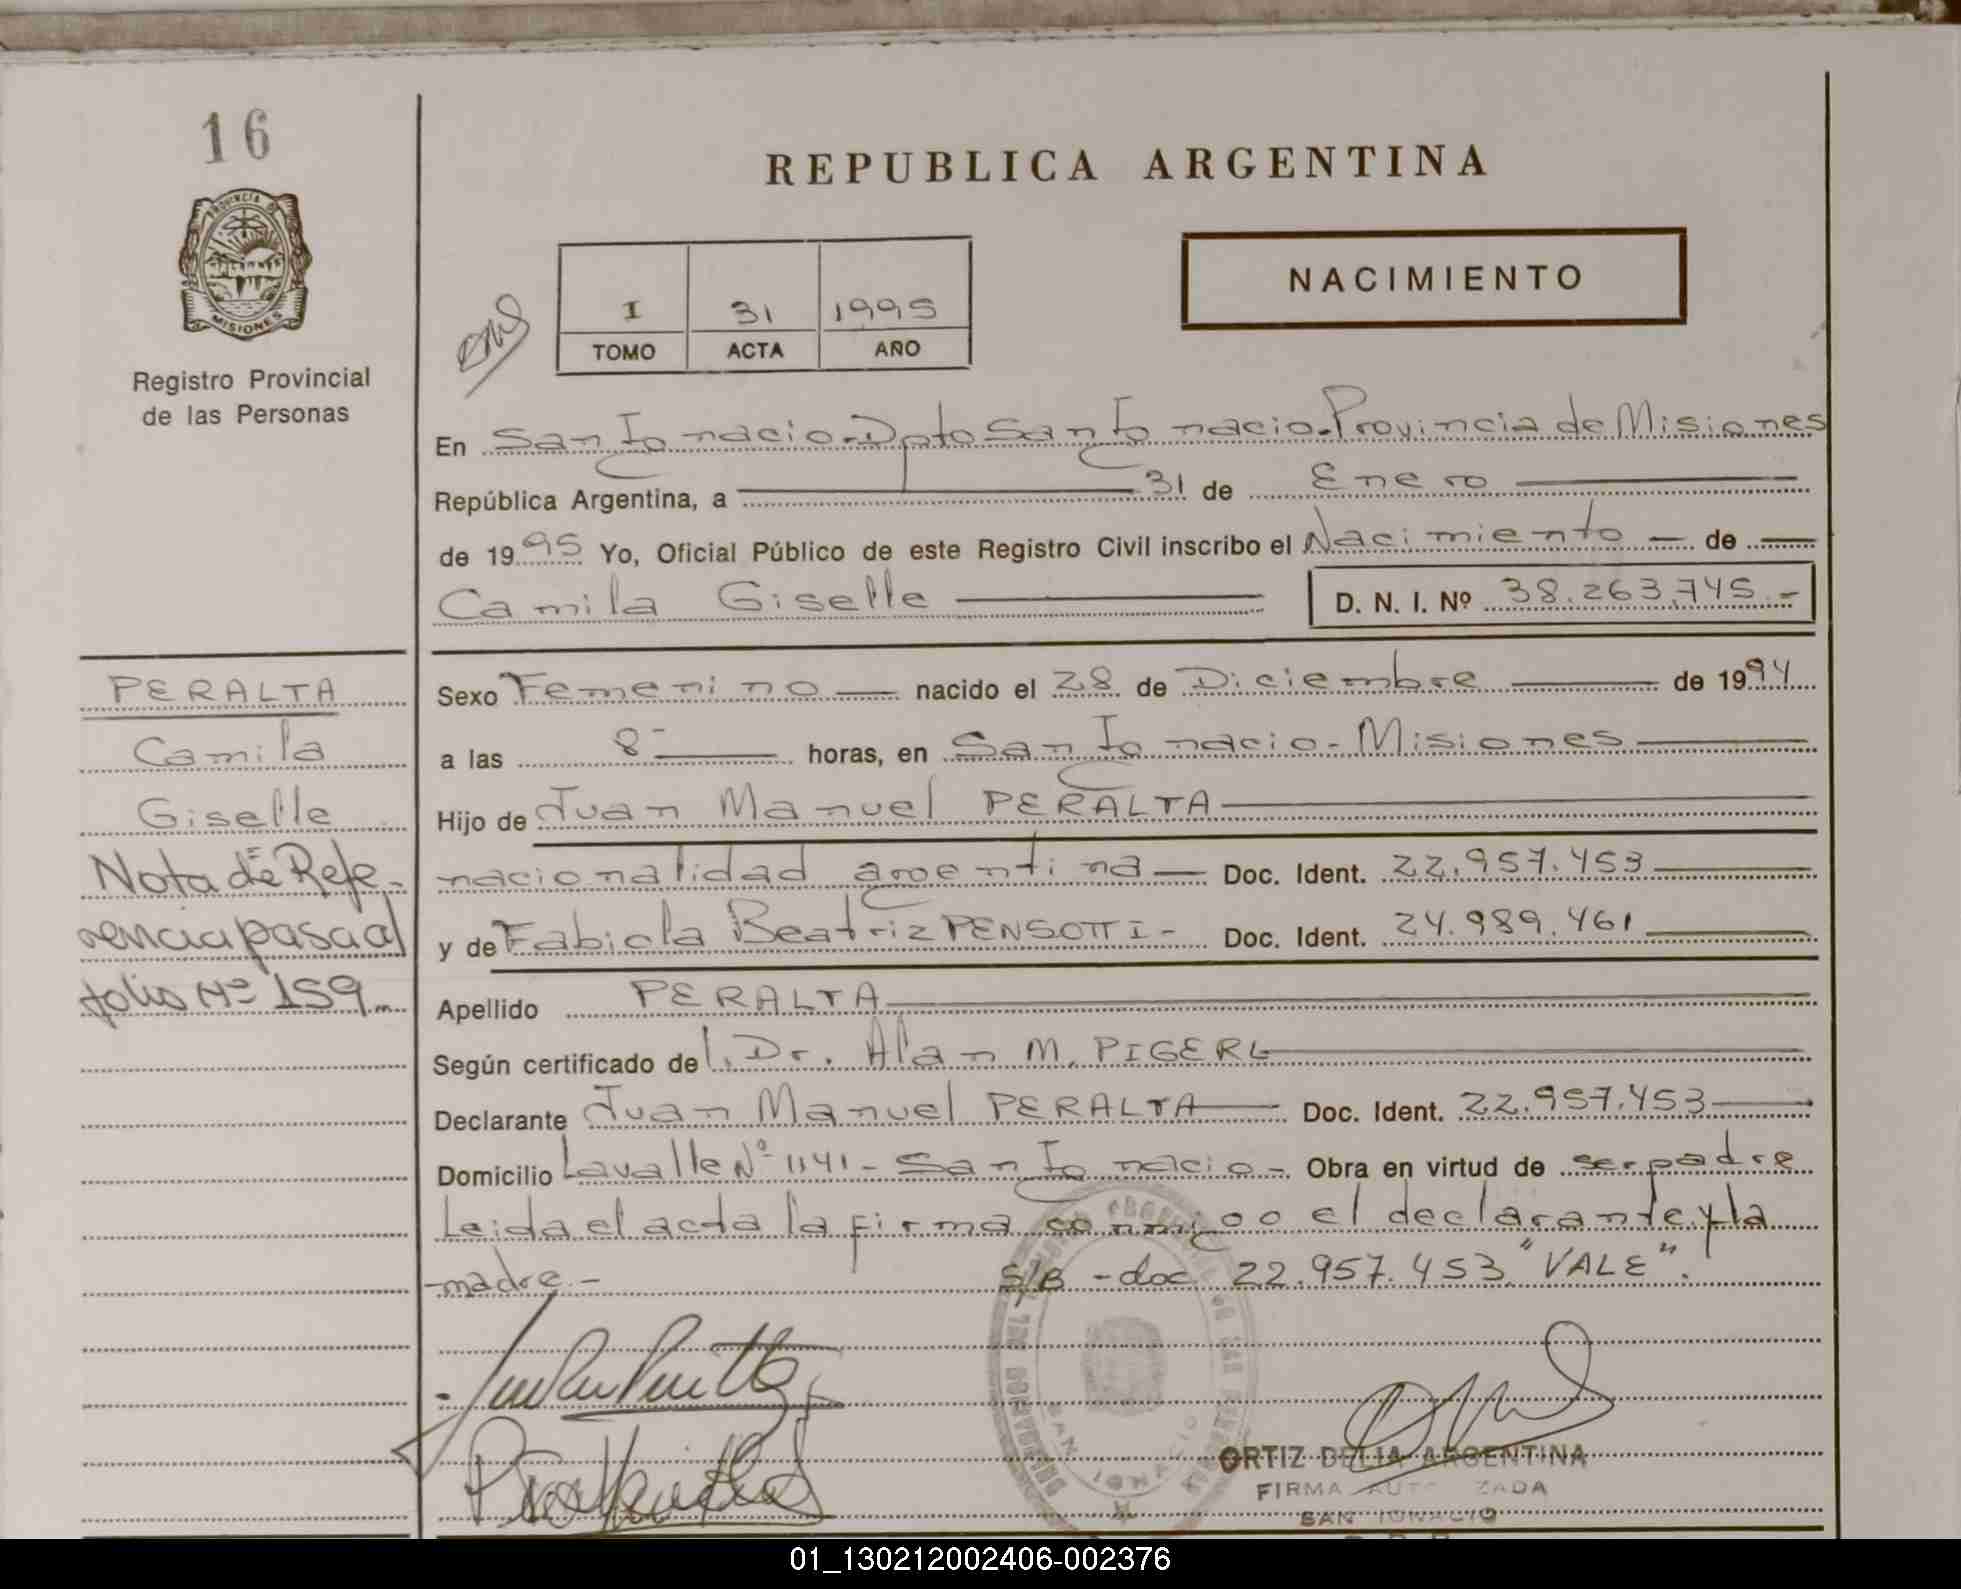 16
PROVINCIA DE
MISIONES
Registro Provincial
de las Personas
REPUBLICA ARGENTINA
NACIMIENTO
I 31 1995
TOMO ACTA AÑO
En San Ignacio-Dpto San Ignacio-Provincia de Misiones
República Argentina, a 31 de Enero
de 1995 Yo, Oficial Público de este Registro Civil inscribo el Nacimiento - de
Camila Giselle D. N. I. Nº 38.263.745.-
PERALTA
Camila
Giselle
Nota de Refe-
rencia pasa al
folio Nº 159
Sexo Femenino nacido el 28 de Diciembre de 1994
a las 8 horas, en San Ignacio-Misiones
Hijo de Juan Manuel PERALTA
nacionalidad argentina Doc. Ident. 22.957.453
y de Fabiola Beatriz PENSOTTI- Doc. Ident. 24.989.461
Apellido PERALTA
Según certificado del Dr. Alan M. PIGERL
Declarante Juan Manuel PERALTA Doc. Ident. 22.957.453
Domicilio Lavalle Nº 1141-San Ignacio- Obra en virtud de ser padre
Leida el acta la firma conmigo el declarante y la
madre.- S/B -doc. 22.957.453 "VALE".
ORTIZ DELIA ARGENTINA
FIRMA AUTORIZADA
SAN IGNACIO
01_130212002406-002376